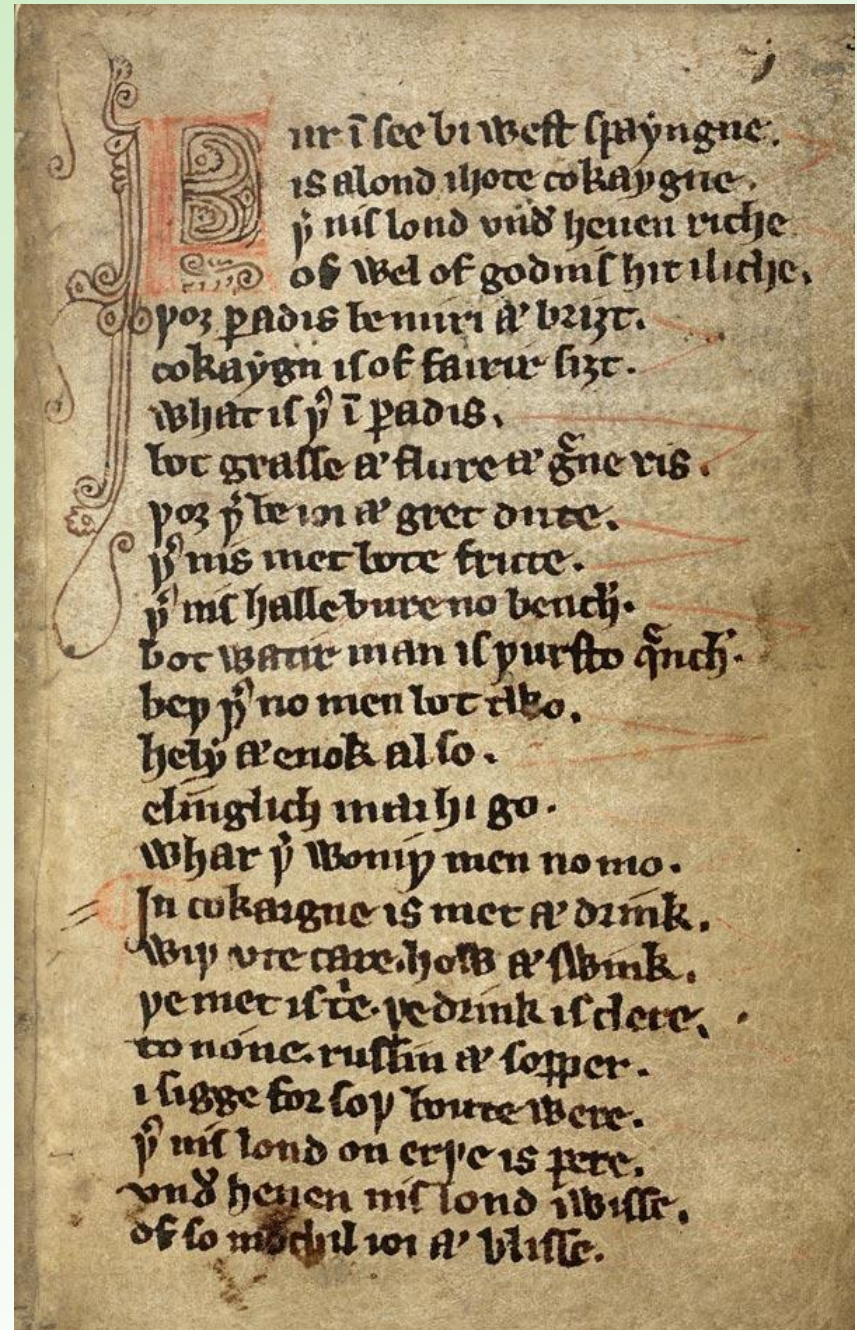 Fur ī see bi west spaẏngne.
is a lond ihote cokaygne.
þ̉ nis lond vnd̉ heuen riche
of wel of godnis hit iliche.
þoȝ ꝑadis be miri ⁊ briȝt.
cokaẏgn is of fairir siȝt.
what is þ̉ ī ꝑadis.
bot grasse ⁊ flure ⁊ gͣne ris.
þoȝ þ̉ be ioi ⁊ gret dute.
þ̉ nis met bote frute.
þ̉ nis halle bure no bench.
bot watir man is þurst to qͣnch.
beþ þ̉ no men bot two.
helẏ ⁊ enok al so.
elinglich mai hi go.
whar þ̉ woniþ men no mo.
In cokaigne is met ⁊ drink.
wiþ vte care. how ⁊ swink.
þe met is tͥe. þe drink is clere.
to none. russin ⁊ sopper.
i sigge for soþ boute were.
þ̉ nis lond on erþe is pere.
vnd̉ heuen nis lond iwisse.
of so mochil ioi ⁊ blisse.